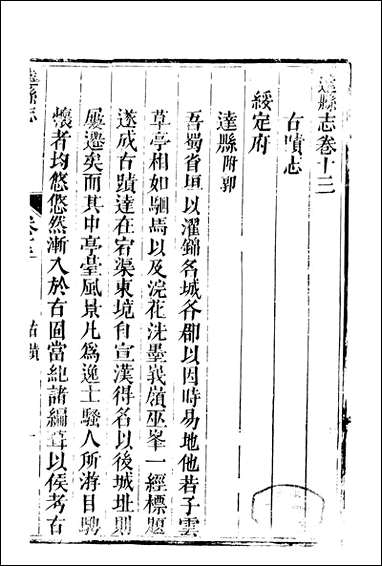 達縣志卷十三
古蹟志
綏定府
達縣附郭
吾蜀省垣以濯錦名城各郡以因時易地他若子雲
草亭相如駟馬以及浣花洗墨峩嶺巫峯一經標題
遂成古蹟達在宕渠東境自宣漢得名以後城址則
屢遷矣而其中亭臺風景凡爲逸士騷人所游目騁
懷者均悠悠然漸入於古固當紀諸編葺以俟考古
達縣志
卷十三
古蹟
一